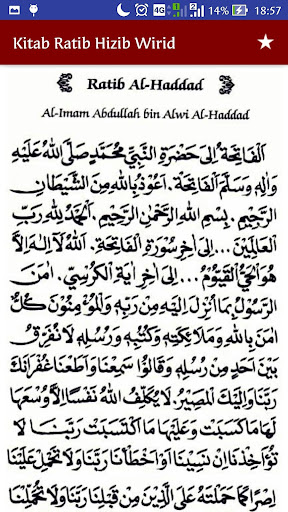 14% 18:57
Kitab Ratib Hizib Wirid
Ratib Al-Haddad
Al-Imam Abdullah bin Alwi Al-Haddad
اَلْفَاتِحَةُ اِلَى حَضْرَةِ النَّبِيِّ مُحَمَّدٍ صَلَّى اللهُ عَلَيْهِ
وَاٰلِهِ وَسَلَّمَ اَلْفَاتِحَةَ. اَعُوْذُ بِاللهِ مِنَ الشَّيْطَانِ
الرَّجِيْمِ. بِسْمِ اللهِ الرَّحْمٰنِ الرَّحِيْمِ. اَلْحَمْدُ لِلّٰهِ رَبِّ
الْعَالَمِيْنَ ... اِلَى اٰخِرِ سُوْرَةِ الْفَاتِحَةِ. اَللهُ لَآ اِلٰهَ اِلَّا
هُوَ الْحَيُّ الْقَيُّوْمُ ... اِلَى اٰخِرِ اٰيَةِ الْكُرْسِيِّ. اٰمَنَ
الرَّسُوْلُ بِمَا اُنْزِلَ اِلَيْهِ مِنْ رَبِّهِ وَالْمُؤْمِنُوْنَ كُلٌّ
اٰمَنَ بِاللهِ وَمَلَائِكَتِهِ وَكُتُبِهِ وَرُسُلِهِ لَا نُفَرِّقُ
بَيْنَ اَحَدٍ مِنْ رُسُلِهِ وَقَالُوْا سَمِعْنَا وَاَطَعْنَا غُفْرَانَكَ
رَبَّنَا وَاِلَيْكَ الْمَصِيْرُ. لَا يُكَلِّفُ اللهُ نَفْسًا اِلَّا وُسْعَهَا
لَهَا مَا كَسَبَتْ وَعَلَيْهَا مَا اكْتَسَبَتْ رَبَّنَا لَا
تُؤَاخِذْنَا اِنْ نَسِيْنَا اَوْ اَخْطَأْنَا رَبَّنَا وَلَا تَحْمِلْ عَلَيْنَا
اِصْرًا كَمَا حَمَلْتَهُ عَلَى الَّذِيْنَ مِنْ قَبْلِنَا رَبَّنَا وَلَا تُحَمِّلْنَا